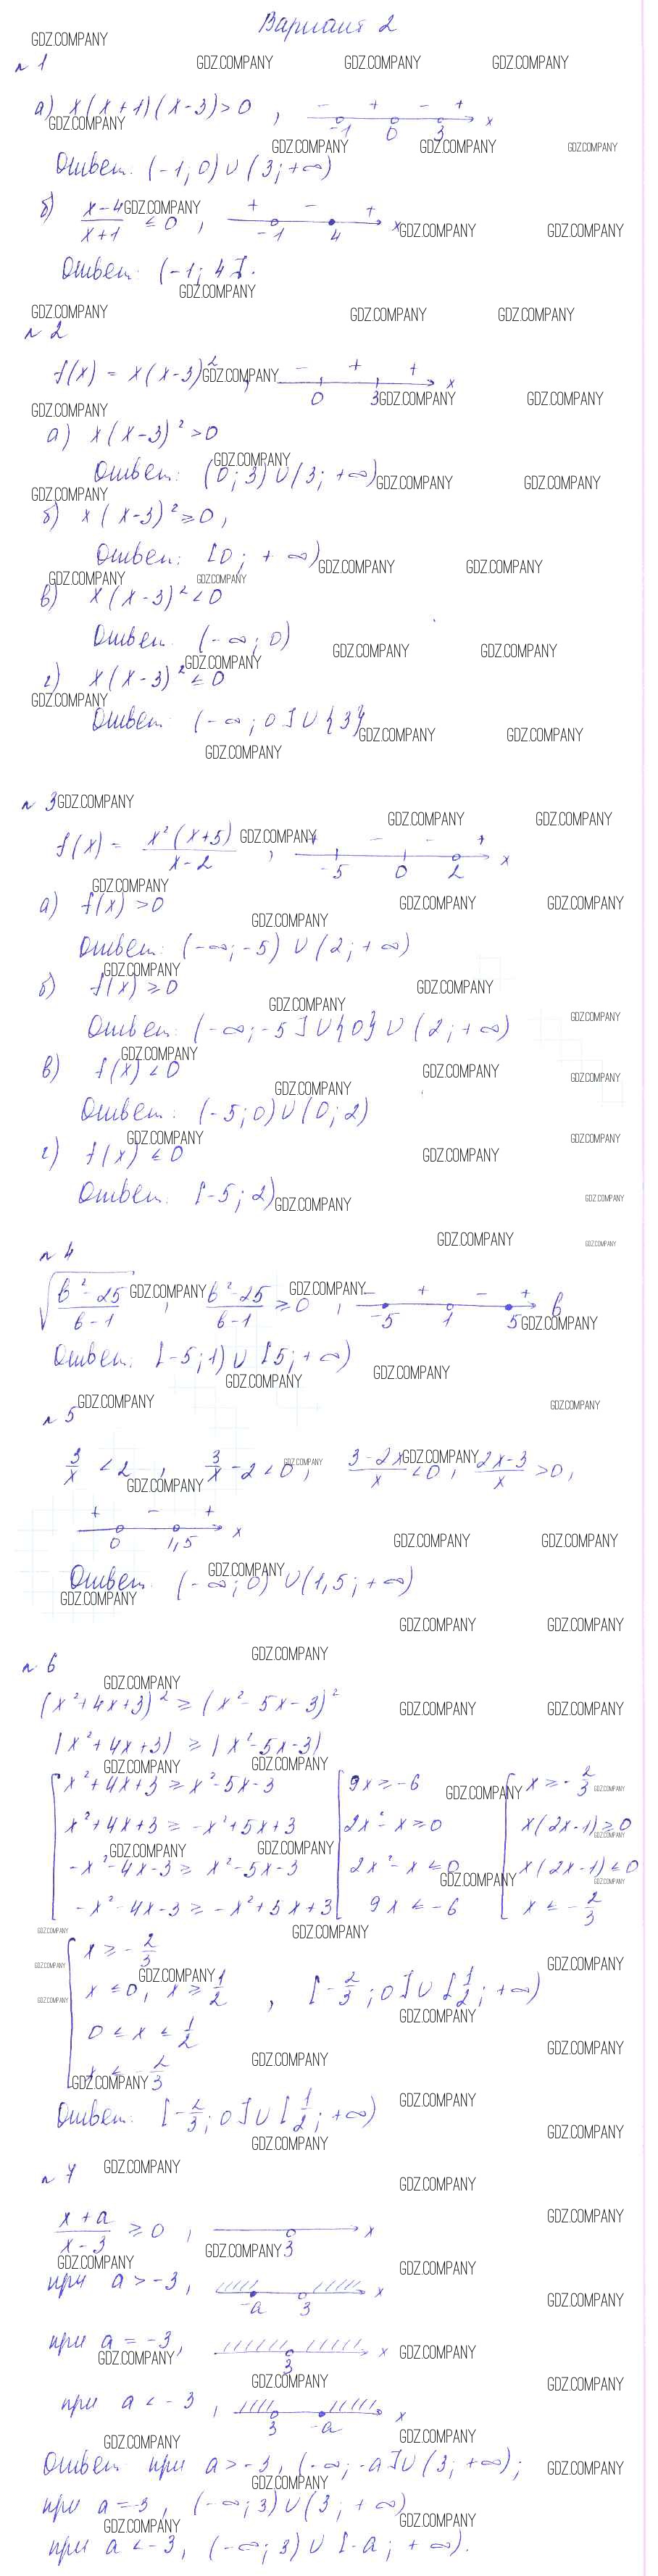 Вариант 2
GDZ.COMPANY
№ 1
а) x(x+1)(x-3)>0 , - + - + -1 0 3 x
Ответ: (-1; 0) ∪ (3; +∞)
б) x-4/x+1 ≤ 0 , + - + -1 4 x
Ответ: (-1; 4].
№ 2
f(x) = x(x-3)² , - + + 0 3 x
а) x(x-3)² >0
Ответ: (0; 3) ∪ (3; +∞)
б) x(x-3)² ≥0,
Ответ: [0; +∞)
в) x(x-3)² <0
Ответ: (-∞; 0)
г) x(x-3)² ≤0
Ответ: (-∞; 0] ∪ {3}
№ 3
f(x) = x²(x+5)/x-2 , + - - + -5 0 2 x
а) f(x) >0
Ответ: (-∞; -5) ∪ (2; +∞)
б) f(x) ≥0
Ответ: (-∞; -5] ∪ {0} ∪ (2; +∞)
в) f(x) <0
Ответ: (-5; 0) ∪ (0; 2)
г) f(x) ≤0
Ответ: [-5; 2)
№ 4
√(b²-25/b-1) , b²-25/b-1 ≥0 , - + - + -5 1 5 b
Ответ: [-5; 1) ∪ [5; +∞)
№ 5
3/x <2 , 3/x -2<0 , 3-2x/x <0 , 2x-3/x >0,
+ - + 0 1,5 x
Ответ: (-∞; 0) ∪ (1,5; +∞)
№ 6
(x²+4x+3)² ≥ (x²-5x-3)²
|x²+4x+3| ≥ |x²-5x-3|
x²+4x+3 ≥ x²-5x-3 9x ≥ -6 x ≥ -2/3
x²+4x+3 ≥ -x²+5x+3 2x²-x ≥0 x(2x-1) ≥0
-x²-4x-3 ≥ x²-5x-3 2x²-x ≤0 x(2x-1) ≤0
-x²-4x-3 ≥ -x²+5x+3 9x ≤ -6 x ≤ -2/3
x ≥ -2/3
x ≤0, x ≥ 1/2 , [-2/3; 0] ∪ [1/2; +∞)
0 ≤ x ≤ 1/2
x ≤ -2/3
Ответ: [-2/3; 0] ∪ [1/2; +∞)
№ 7
x+a/x-3 ≥0 , 3 x
при a > -3, -a 3 x
при a = -3, 3 x
при a < -3 , 3 -a x
Ответ: при a > -3, (-∞; -a] ∪ (3; +∞);
при a = -3, (-∞; 3) ∪ (3; +∞)
при a < -3, (-∞; 3) ∪ [-a; +∞).